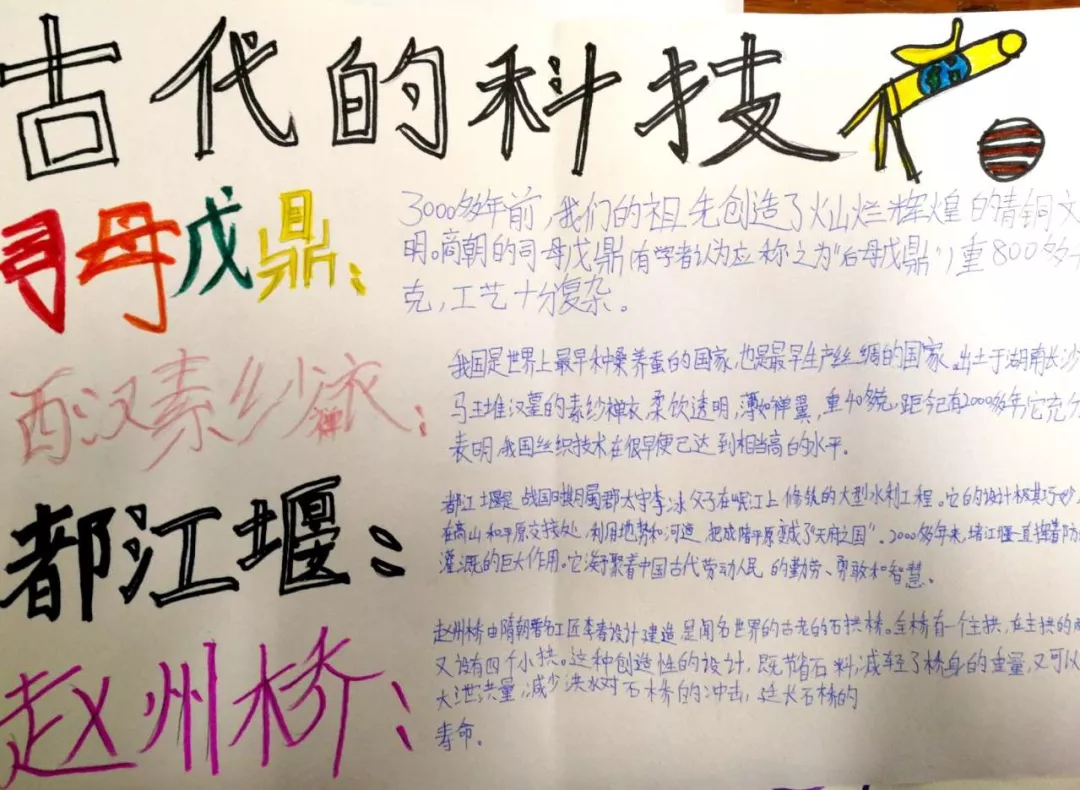 古代的科技
司母戊鼎:
3000多年前,我们的祖先创造了火山烂辉煌的青铜文
明。商朝的司母戊鼎(有学者认为应称之为"后母戊鼎")重800多千
克,工艺十分复杂。
西汉素纱禅衣:
我国是世界上最早种桑养蚕的国家,也是最早生产丝绸的国家。出土于湖南长沙
马王堆汉墓的素纱禅衣,柔饮透明,薄如禅翼,重40多克,距今已有2000多年,它充分
表明,我国丝织技术在很早便已达到相当高白的水平。
都江堰:
都江堰是战国时期蜀郡太守李冰父子在岷江上修筑的大型水利工程。它的设计极其巧妙,
在高山和平原交接处,利用地势和河道,把成都平原变成了"天府之国"。2000多年来,堵江堰一直挥着防
灌溉的巨大作用。它凝聚着中国古代劳动人民的勤劳、勇敢和智慧。
赵州桥:
赵州桥由隋朝著名工匠李春设计建造,是闻名世界的古老的石拱桥。全桥有一个主拱,在主拱的两
又设有四个小拱。这种创造性的设计,既节省石料,减轻了桥身的重量,又可以
大泄洪量,减少洪水对石桥的冲击,延长石桥的
寿命。